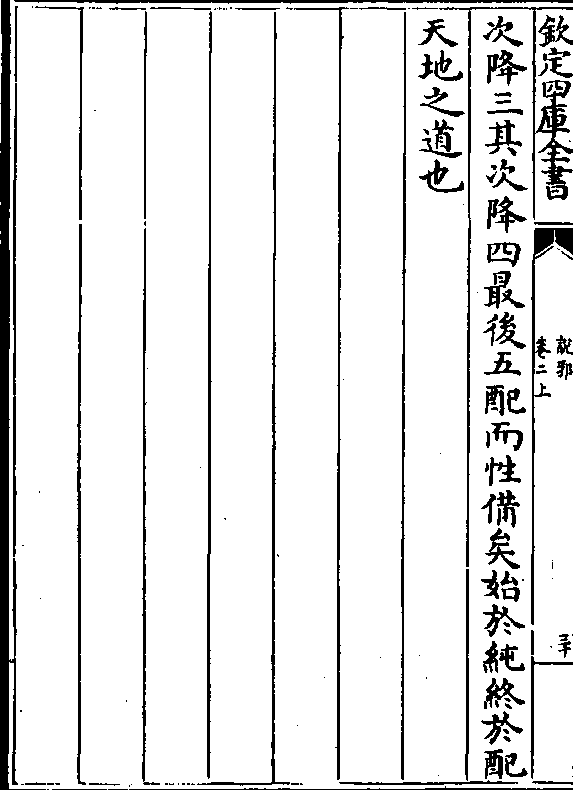 欽定四庫全書
說郛
卷二上
三十
次降三其次降四最後五配而性備矣始於純終於配
天地之道也